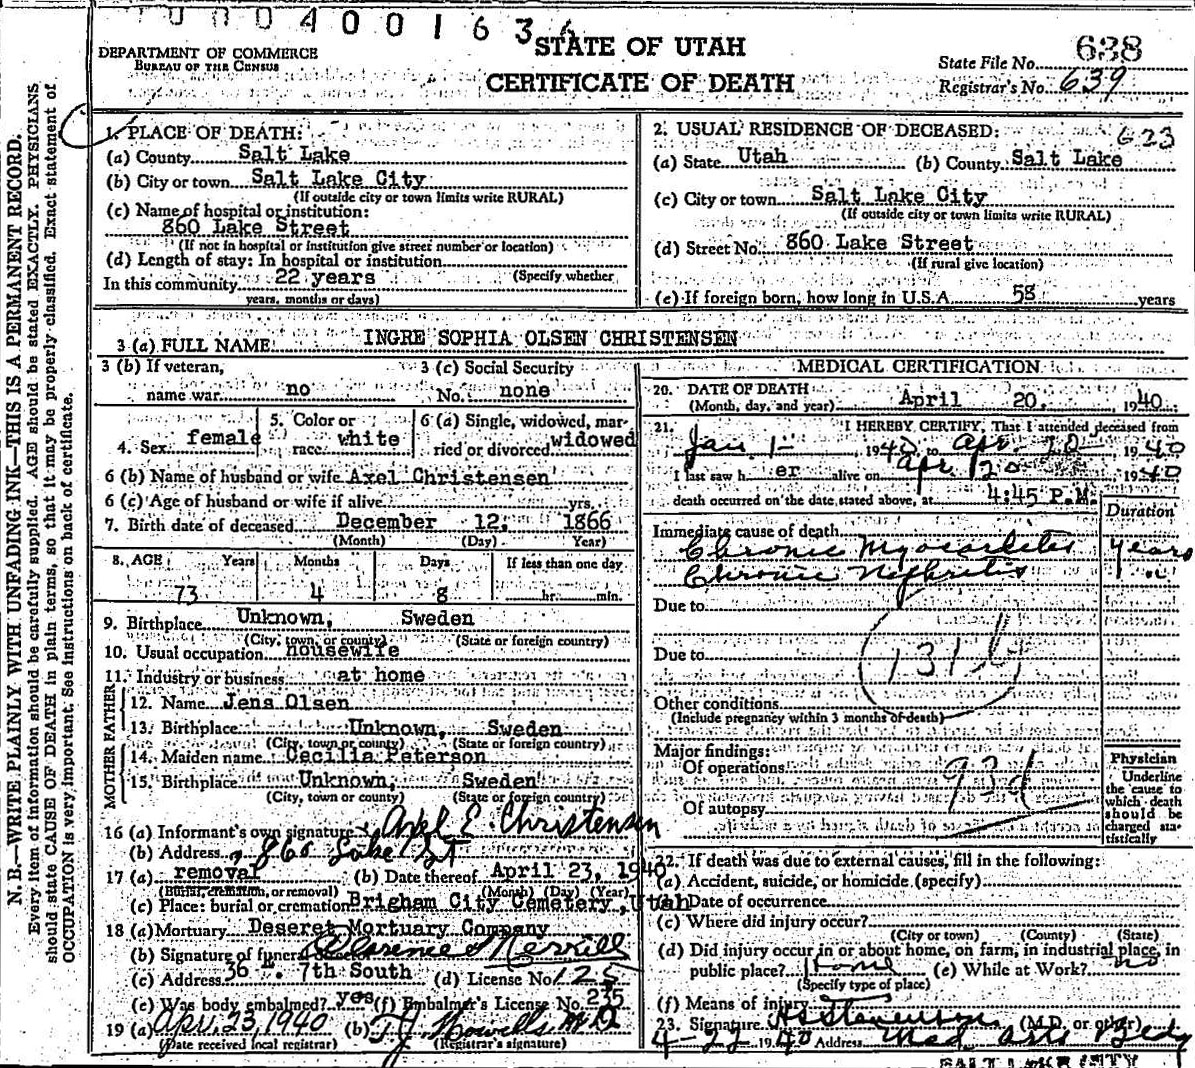 U 0 0 4 0 0 1 6 3
STATE OF UTAH
CERTIFICATE OF DEATH
DEPARTMENT OF COMMERCE
BUREAU OF THE CENSUS
638
State File No.
Registrar's No. 639
N. B.—WRITE PLAINLY WITH UNFADING INK—THIS IS A PERMANENT RECORD.
Every item of information should be carefully supplied. AGE should be stated EXACTLY. PHYSICIANS
should state CAUSE OF DEATH in plain terms, so that it may be properly classified. Exact statement of
OCCUPATION is very important. See instructions on back of certificate.
1. PLACE OF DEATH:
(a) County Salt Lake
(b) City or town Salt Lake City
(If outside city or town limits write RURAL)
(c) Name of hospital or institution:
860 Lake Street
(If not in hospital or institution give street number or location)
(d) Length of stay: In hospital or institution
In this community 22 years (Specify whether
years, months or days)
2. USUAL RESIDENCE OF DECEASED: 623
(a) State Utah (b) County Salt Lake
(c) City or town Salt Lake City
(If outside city or town limits write RURAL)
(d) Street No. 860 Lake Street
(If rural give location)
(e) If foreign born, how long in U.S.A. 58 years
3 (a) FULL NAME INGRE SOPHIA OLSEN CHRISTENSEN
3 (b) If veteran, 3 (c) Social Security
name war no No. none
4. Sex female 5. Color or race white 6 (a) Single, widowed, mar-
ried or divorced widowed
6 (b) Name of husband or wife Axel Christensen
6 (c) Age of husband or wife if alive yrs.
7. Birth date of deceased December 12, 1866
(Month) (Day) Year)
8. AGE Years Months Days If less than one day
73 4 8 hr. min.
9. Birthplace Unknown, Sweden
(City, town, or county) (State or foreign country)
10. Usual occupation housewife
11. Industry or business at home
FATHER
12. Name Jens Olsen
13. Birthplace Unknown, Sweden
(City, town or county) (State or foreign country)
MOTHER
14. Maiden name Cecilia Peterson
15. Birthplace Unknown, Sweden
(City, town or county) (State or foreign country)
16 (a) Informant's own signature Axel E. Christensen
(b) Address 860 Lake St
17 (a) removal (b) Date thereof April 23, 1940
(Burial, cremation, or removal) (Month) (Day) (Year)
(c) Place: burial or cremation Brigham City Cemetery, Utah
18 (a) Mortuary Deseret Mortuary Company
(b) Signature of funeral director Clarence Merrill
(c) Address 36 E. 7th South (d) License No. 125
(e) Was body embalmed? yes (f) Embalmer's License No. 235
19 (a) Apr. 23, 1940 (b) T.J. Howells M D
(Date received local registrar) (Registrar's signature)
MEDICAL CERTIFICATION
20. DATE OF DEATH
(Month, day, and year) April 20, 1940
21. I HEREBY CERTIFY, That I attended deceased from
Jan 1- 1940, to Apr 20 1940
I last saw h er alive on Apr 20 1940
death occurred on the date stated above, at 4:45 P.M.
Duration
Immediate cause of death
Chronic Myocarditis years
Chronic Nephritis "
Due to
131 b
Due to
Other conditions
(Include pregnancy within 3 months of death)
Major findings:
Of operations
93d
Of autopsy
Physician
Underline
the cause to
which death
should be
charged sta-
tistically
22. If death was due to external causes, fill in the following:
(a) Accident, suicide, or homicide (specify)
(b) Date of occurrence
(c) Where did injury occur?
(City or town) (County) (State)
(d) Did injury occur in or about home, on farm, in industrial place, in
public place? Home (e) While at Work? no
(Specify type of place)
(f) Means of injury
23. Signature (M.D. or other)
4-22 1940 Address Med Arts Bldg
SALT LAKE CITY